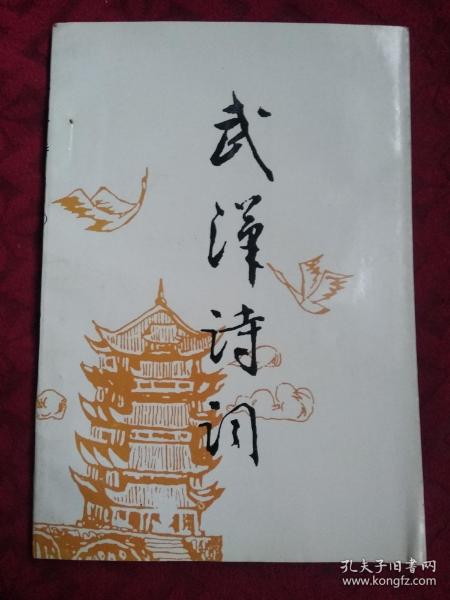 武汉诗词
孔夫子旧书网
www.kongfz.com